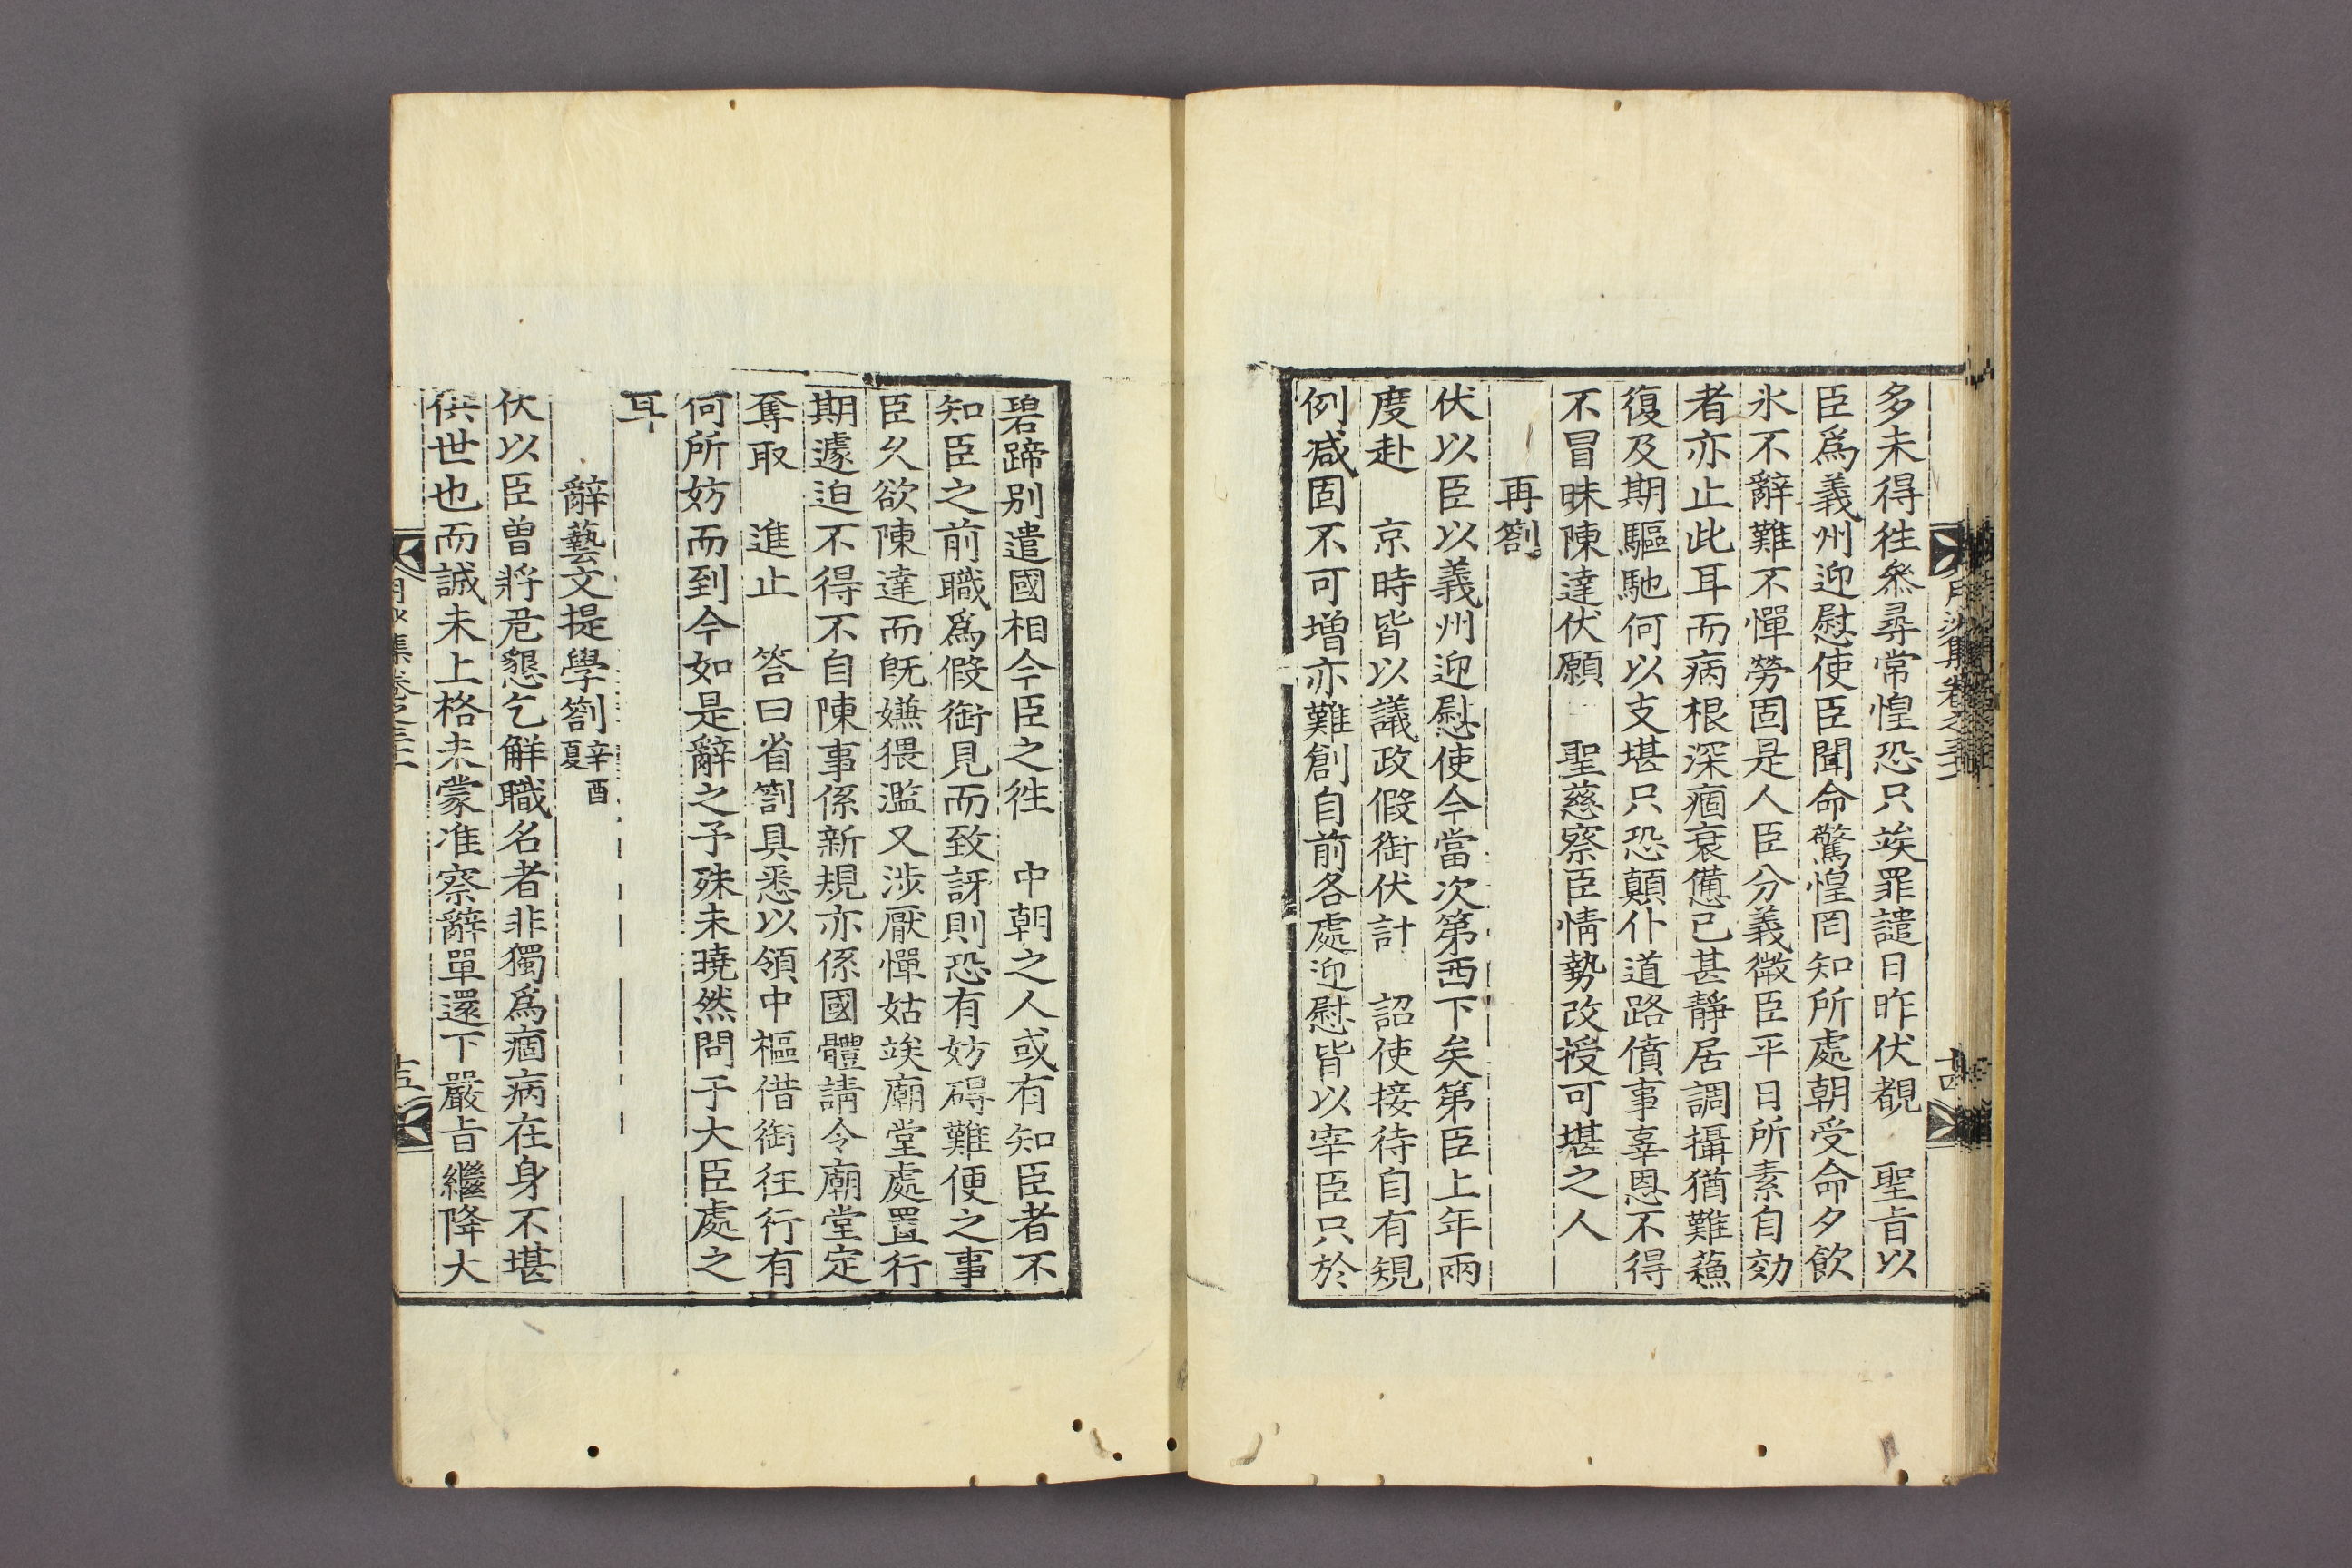 多未得徃叅尋常惶恐只竢罪譴日昨伏覩 聖旨以
臣爲義州迎慰使臣聞命驚惶罔知所處朝受命夕飮
氷不辭難不憚勞固是人臣分義微臣平日所素自効
者亦止此耳而病根深痼衰憊已甚靜居調攝猶難蘓
復及期驅馳何以支堪只恐顚仆道路僨事辜恩不得
不冒昧陳達伏願 聖慈察臣情勢改授可堪之人
再劄
伏以臣以義州迎慰使今當次第西下矣第臣上年兩
度赴 京時皆以議政假銜伏計 詔使接待自有規
例减固不可增亦難創自前各處迎慰皆以宰臣只於
月沙集卷之三十一
十四
碧蹄别遣國相今臣之徃 中朝之人或有知臣者不
知臣之前職爲假銜見而致訝則恐有妨碍難便之事
臣久欲陳達而旣嫌猥濫又涉厭憚姑竢廟堂處置行
期遽迫不得不自陳事係新規亦係國體請令廟堂定
奪取 進止 答曰省劄具悉以領中樞借銜徃行有
何所妨而到今如是辭之予殊未曉然問于大臣處之
耳
辭藝文提學劄辛酉夏
伏以臣曾將危懇乞解職名者非獨爲痼病在身不堪
供世也而誠未上格未蒙准察辭單還下嚴旨繼降大
月沙集卷之三十一
十五